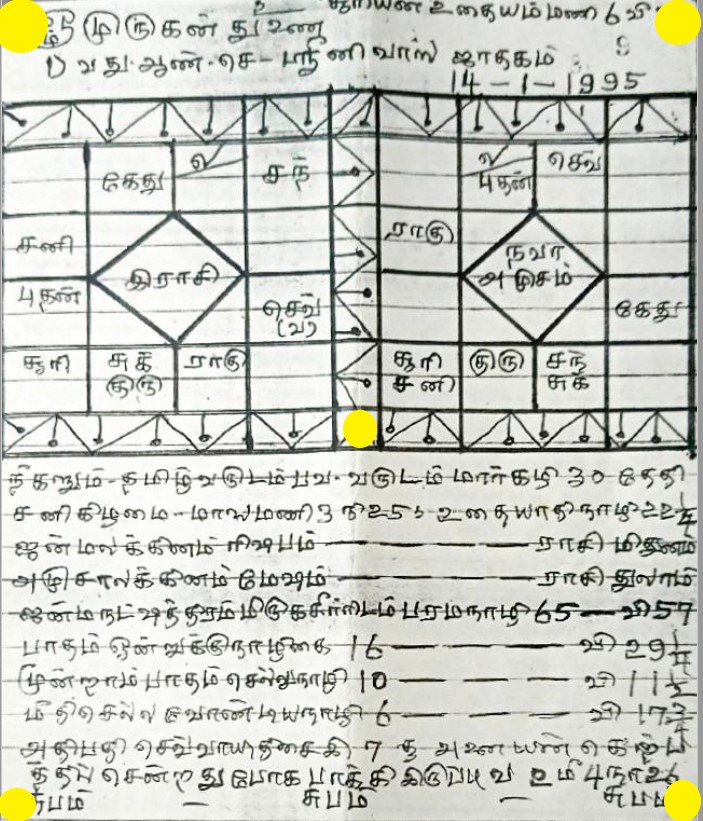 முருகன் துணை
சூரியன் உதையம் மணி 6 வி
வது ஆண் - செ - ஸ்ரீனிவாஸ் ஜாதகம்
14-1-1995
கேது ல சந்
சனி
இராசி
புதன்
செவ் (வ)
சூரி சுக் குரு ராகு
ல புதன் செவ்
ராகு
நவாஅம்சம்
கேது
சூரி சனி குரு சந் சுக்
நிகழும் - தமிழ் வருடம் பவ - வருடம் மார்கழி 30 தேதி
சனிகிழமை - மாலைமணி 3 நி 25 உதையாதிநாழி 22 1/4
ஜன்மலக்கினம் ரிஷபம் ——— ராசி மிதுனம்
அம்சாலக்கினம் மேஷம் ——— ராசி துலாம்
ஜன்மநட்ஷத்தரம் மிருகசீரிடம் பரமநாழி 65 — வி 57
பாதம் ஒன்றுக்கு நாழிகை 16 ——— வி 29 1/4
மூன்றாம் பாதம் செல்லுநாழி 10 ——— வி 11 1/2
மீதி செல்லவேண்டியநாழி 6 ——— வி 17 3/4
அதிபதி செவ்வாய்திசை 7
சென்றது போக பாக்கி இருப்பு வ 2 மீ 4 நா 26
சுபம் — சுபம் — சுபம்